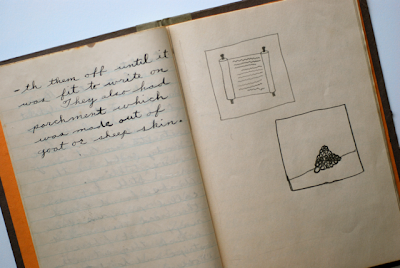 -th them off until it
was fit to write on
They also had
parchment which
was made out of
goat or sheep skin.